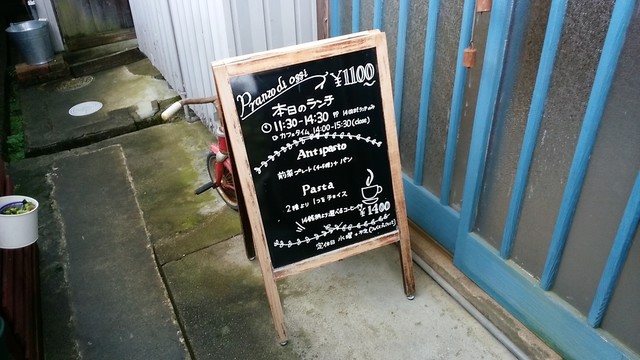 Pranzo di oggi ¥1100〜
本日のランチ
11:30-14:30
カフェタイム 14:00-15:30(close)
Antipasto
前菜プレート + パン
Pasta
2種より1つをチョイス
¥1400
定休日 火曜